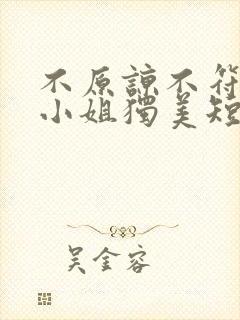 不原諒不符
小姐獨美短
吳金容